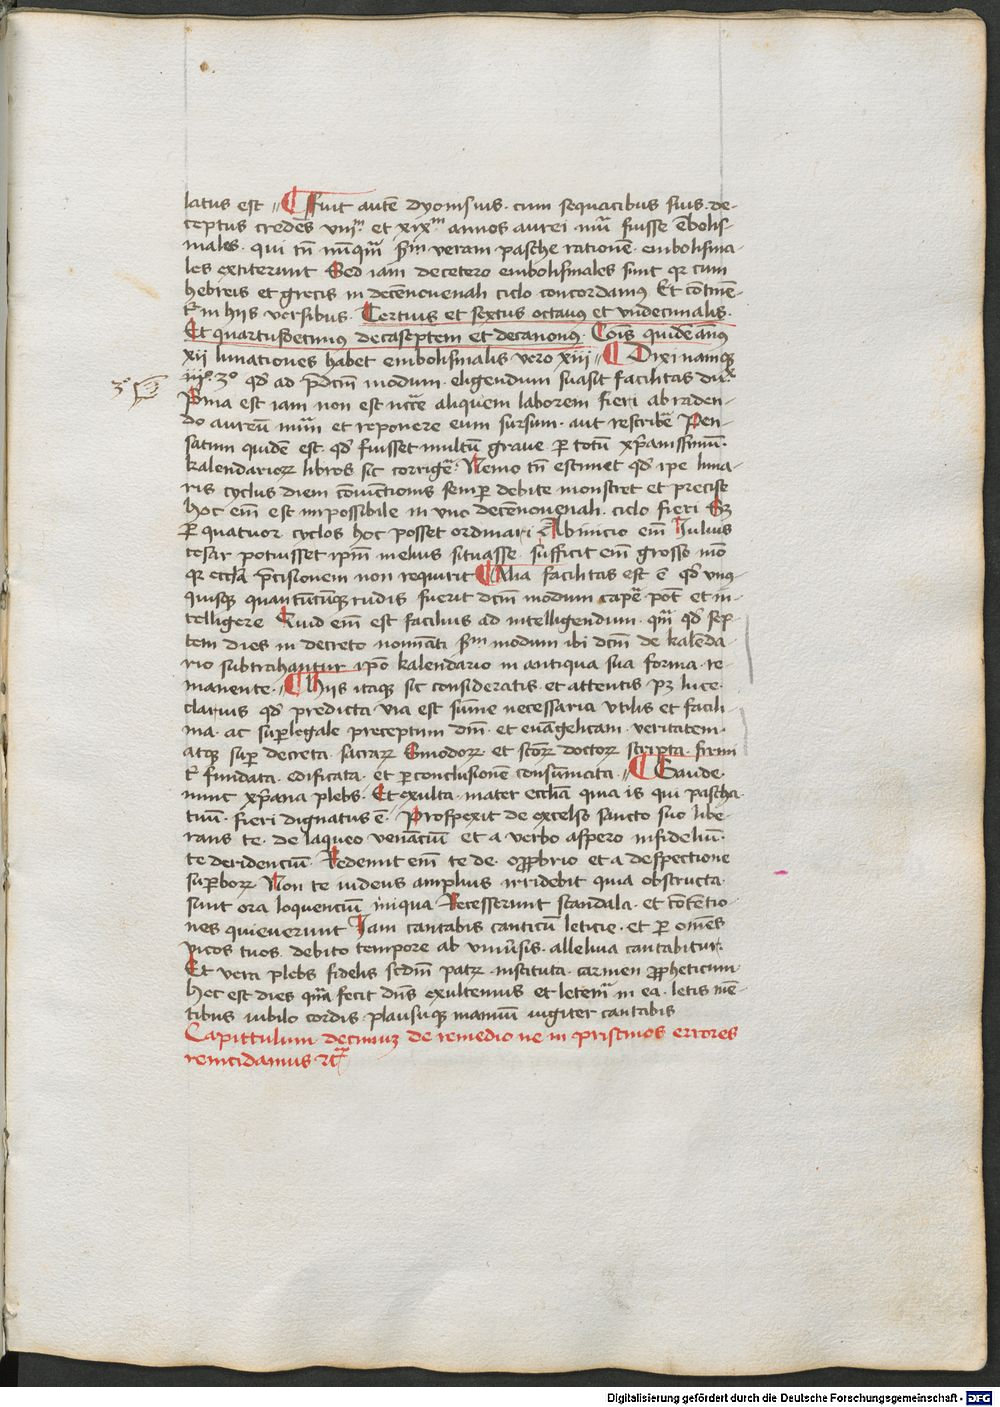 latus est // ¶ Fuit autē dyonisius · cum sequacibus suis · de-
ceptus credēs viijm et xixm annos aurei · nūi fuisse ēbolis-
males · qui tn̄ nūqm̄ sm̄ veram pasche rationē · embolisma-
les extiterunt Sed iam decetero embolismales sint qr cum
hebreis et grecis in decēnouenali ciclo concordamꝰ Et cōtinē-
tr in hijs versibus · Tercius et sextus octauꝰ et vndecimalis ·
Et quartusdecimus decaseptem et decanonꝰ · Cōis quidē annꝰ
xij lunationes habet embolismalis vero xiij // ¶ Dixi namqꝫ
3o
iijo 3o qd ad p̄dcm̄ modum · eligendum suasit facilitas du
Pma est iam non est ncc̄e aliquem laborem fieri abraden-
do aureū nūm et reponere eum sursum · aut rescribē Pen-
satum quidē est · qd fuisset multū graue ꝑ totū xp̄anissimū ·
kalendarioꝝ libros sic corrigē · Nemo tn̄ estimet qd ipe luna-
ris cyclus diem cōiunctionis semꝑ debite monstret et precise
hoc em̄ est impossibile in vno decēnouenali · ciclo fieri Sꝫ
ꝑ quatuor cyclos hoc posset ordinari Ab inicio em̄ Iulius
cesar potuisset ipm̄ melius situasse · sufficit em̄ grosso mō
qr eccl̄ia p̄cisionem non requirit ¶ Alia facilitas est ē qd vnꝰ-
quisqꝫ quantūcūqꝫ rudis fuerit dcm̄ modum capē pot̄ et in-
telligere Quid em̄ est facilius ad intelligendum · qm̄ qd sep-
tem dies in decreto nominati sm̄ modum ibi dcm̄ de kalēda-
rio subtrahantur ipo kalendario in antiqua sua forma · re-
manente · // ¶ Hijs itaqꝫ sic consideratis · et attentis pꝫ luce ·
clarius qd predicta via est sūme necessaria vtilis et facili-
ma · ac suꝑ legale preceptum dm̄ · et euāgelicam · veritatem ·
atqꝫ suꝑ decreta · sacraꝝ Sinodoꝝ · et sctoꝝ doctoꝝ scripta · firmi
tr fundata · edificata · et ꝑ conclusionē consūmata · // ¶ Gaude ·
nunc xp̄ana plebs · Et exulta · mater eccl̄ia quia is qui pascha ·
tuū · fieri dignatus ē · Prospexit de excelso sancto suo libe-
rans te · de laqueo venanciū et a verbo aspero infideliū ·
te deridenciū · Redemit em̄ te de · opprobrio et a despectione
suꝑboꝝ Non te iudeus amplius irridebit quia obstructa ·
sunt ora loquenciū iniqua Recesserunt scandala · et cōtētio-
nes quieuerunt Iam cantabis canticū leticie · et ꝑ omēs
vicos tuos · debito tempore ab vniūsis · alleluia cantabitur ·
Et vera plebs fidelis scdm̄ patꝝ · instituta · carmen ꝓpheticum
Hec est dies qm̄ fecit dn̄s exultemus et letem̄ in ea · letis mē-
tibus iubilo cordis · plausuqꝫ manuū iugiter cantabis
Capittulum decimuꝫ de remedio ne in pristinos errores
reincidamus ⁊c